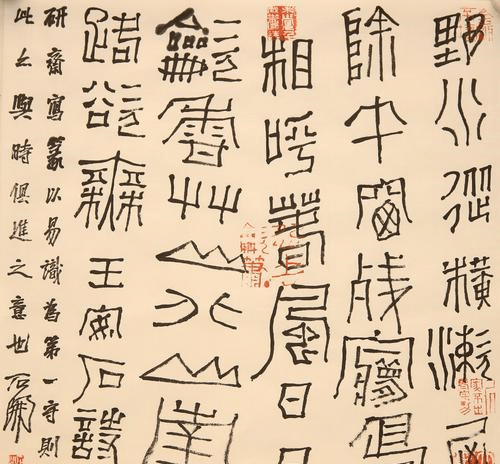 野水從橫漱屋
除午窗殘夢鳥
相呼春風日日
龡香艸山北山南
路欲無王安石詩
研齋寫篆以易識為第一守則
此亦與時俱進之意也石開